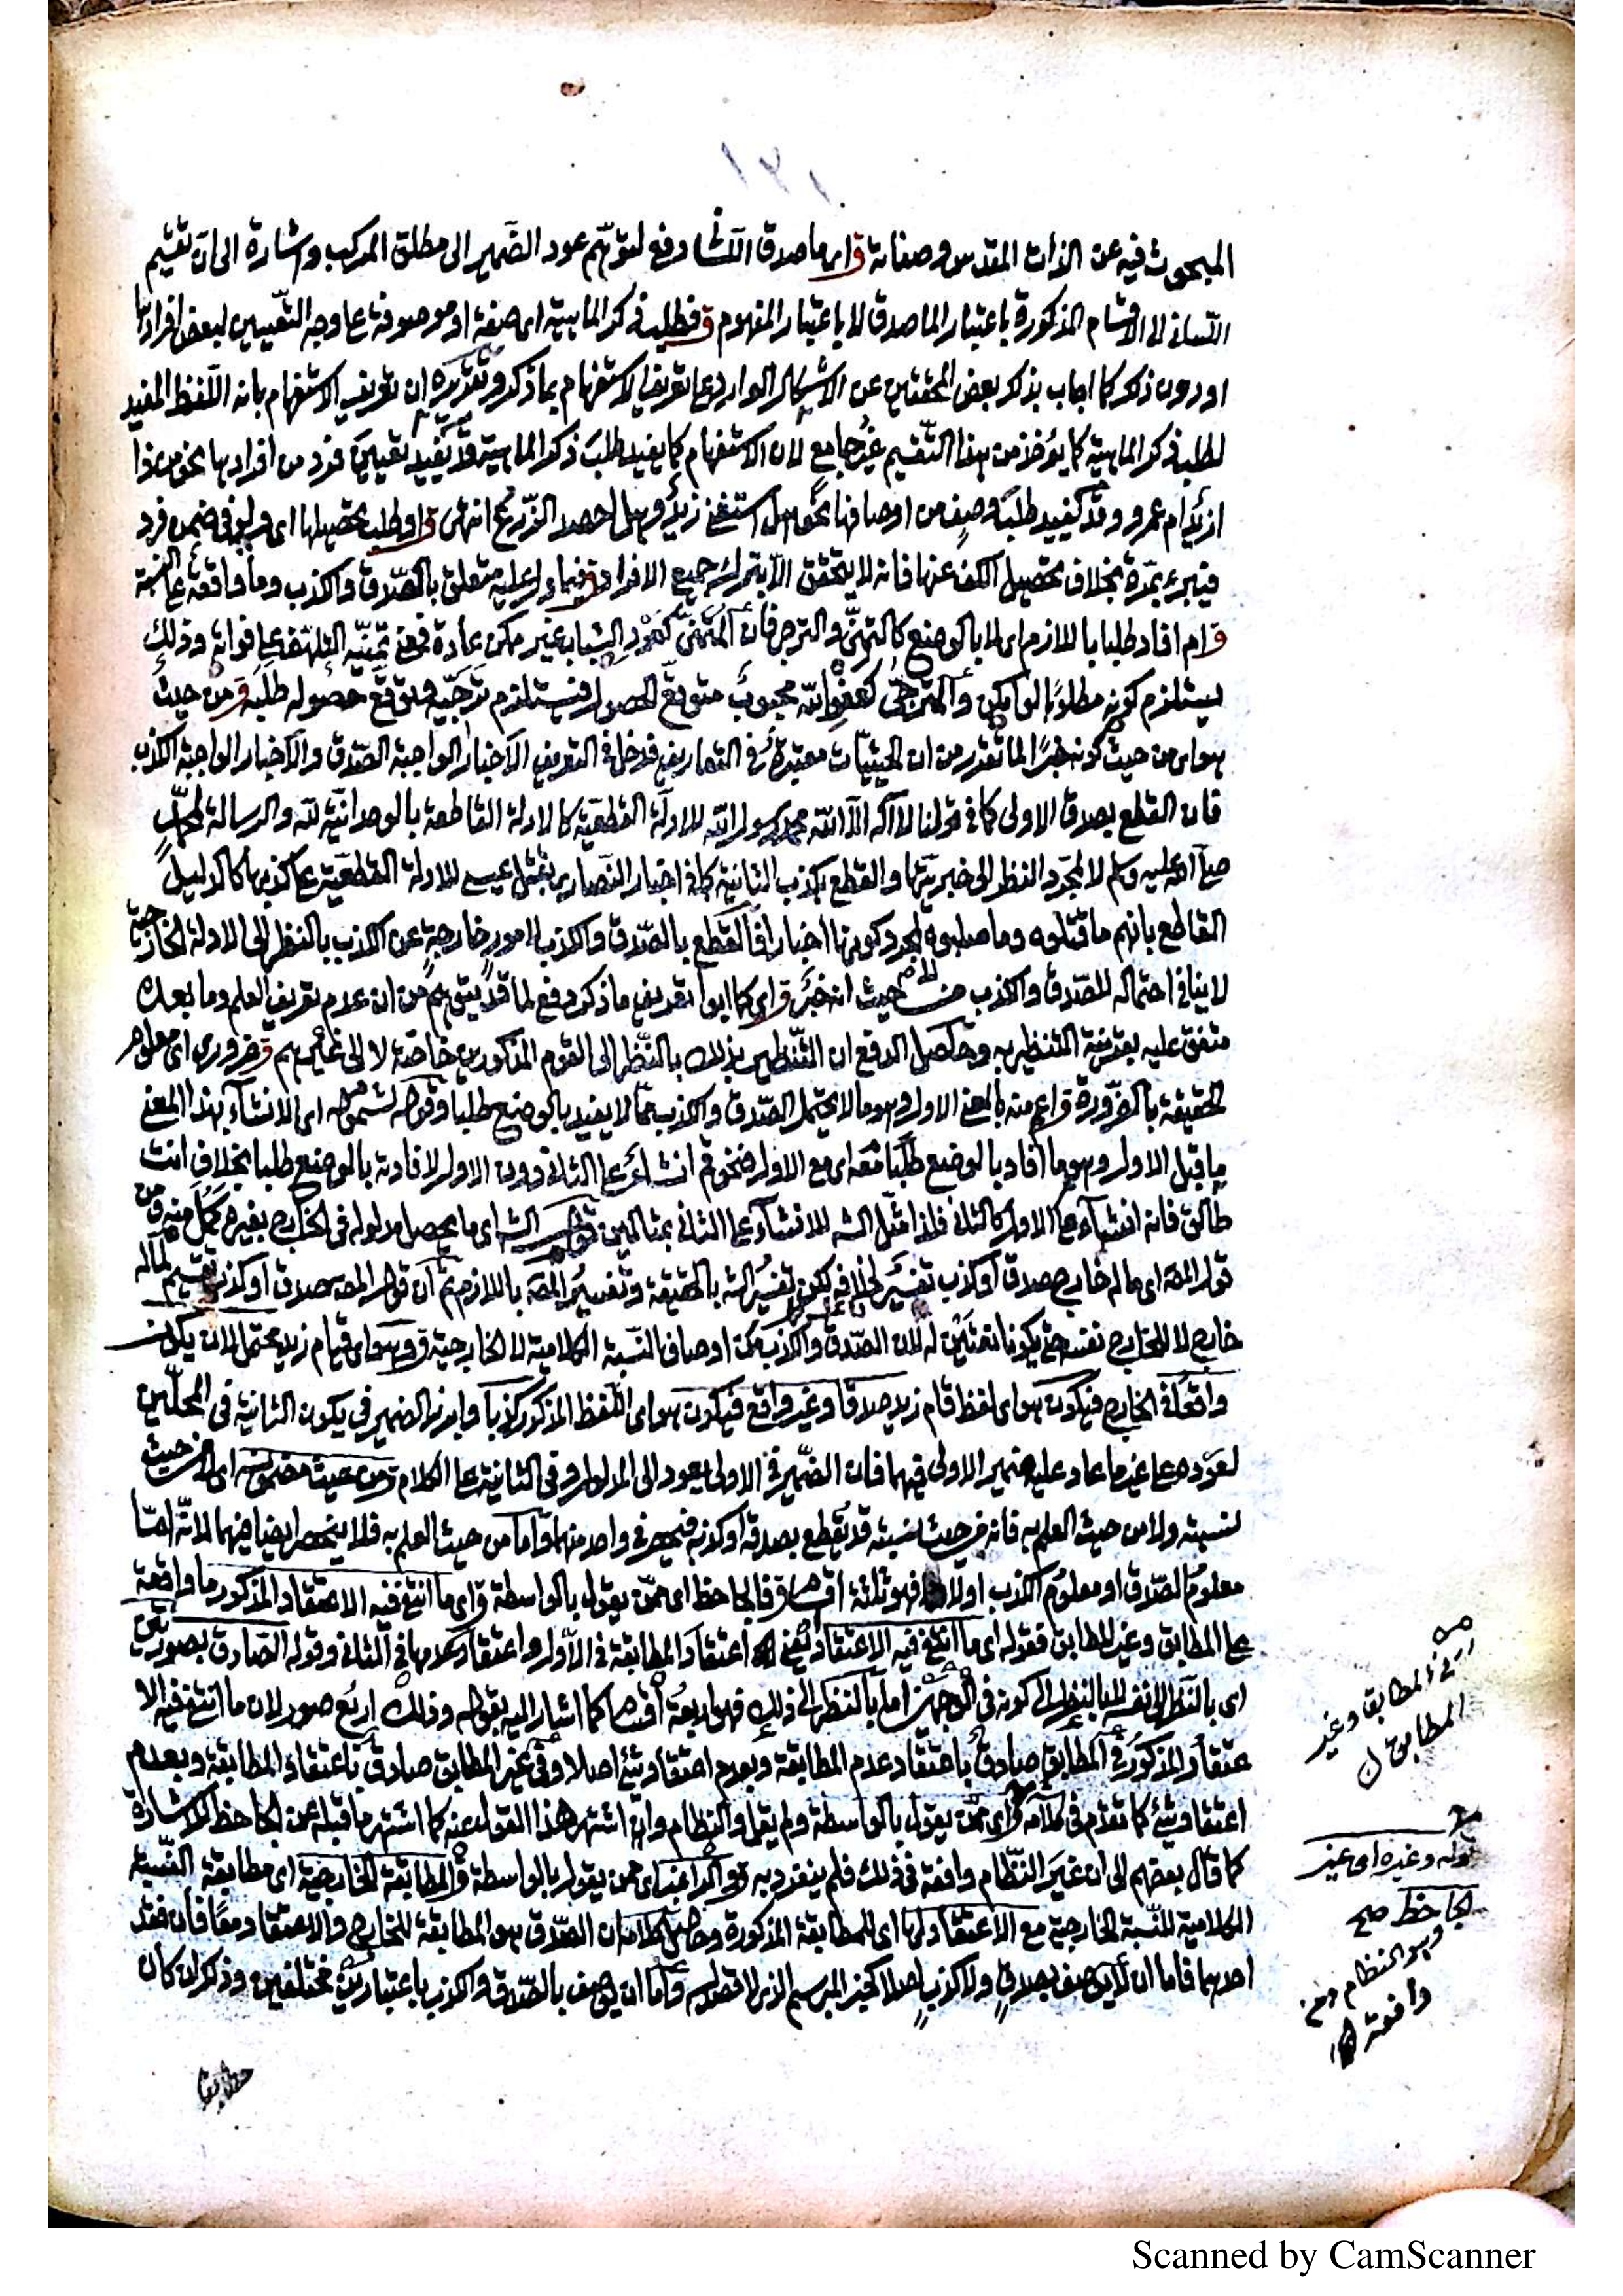 ١٢١
المبحوث فيه عن الذات المقدس وصفاته ق اى ما صدق اللسانى دفع لتوهّم عود الضمير الى مطلق المركب واشارة الى ان تقسيم
اللسانى الى الاقسام المذكورة باعتبار الماصدق لا باعتبار المفهوم ق فطلب ذكر الماهية اى صفة او موصوفة على وجه التعيين لبعض افرادها
او دون ذكر كما اجاب بذكر بعض المحققين عن الاشكال الوارد على تعريف الاستفهام بما ذكر وتقريره ان تعريف الاستفهام بانه اللفظ المفيد
لطلب ذكر الماهية كما يؤخذ من هذا التقسيم غير جامع لان الاستفهام كما يفيد طلب ذكر الماهية قد يفيد تعيين فرد من افرادها نحو من ذا
ازيد ام عمرو وقد يفيد طلب وصف من اوصافها نحو هل استغنى زيد وهل احصد الزرع انتهى ق او طلب تحصيلها اى ولو فى ضمن فرد
فيبرء بمرة بخلاف تحصيل الكف عنها فانه لا يتحقق الا بترك جميع الافراد متعلق بالصدق والكذب وما واقعة على النسبة
ق ام افاد طلبا باللازم اى لا بالوضع كالتمنى والترجى فان المتمنى كعود الشباب غير ممكن عادة فمعنى تمنيه التلهف على فواته وذلك
يستلزم كونه مطلوبا لو امكن والمترجى كعفو الله محبوب متوقع الحصول فيستلزم ترجيه توقع حصوله طلبه ق من حيث
هو اى من حيث كونه خبرا لما تقدر من ان الحيثيات معتبرة فى التعاريف فدخل فى التعريف الاخبار الواجبة الصدق والاخبار الواجبة الكذب
فان القطع بصدق الاولى كما فى قولنا لا اله الا الله محمد رسول الله للادلة القطعية كالادلة القاطعة بالوحدانية لله والرسالة لمحمد
صلى الله عليه وسلم لا لمجرد النظر الى خبريتها والقطع بكذب الثانية كما فى اخبار النصارى بقتل عيسى للادلة القطعية على كذبها كالدليل
القاطع بانهم ما قتلوه وما صلبوه لمجرد كونها اخبارا فالقطع بالصدق والكذب لامور خارجة عن الكذب بالنظر الى الادلة الخارجية
لا ينافى احتماله للصدق والكذب من حيث انه خبر ق اى كما ابوا تعريف ما ذكر دفع لما قد يتوهم من ان عدم تعريف العلم وما بعده
متفق عليه بقرينة التنظير به وحاصل الدفع ان التنظير بذلك بالنظر الى القوم المذكورين خاصة لا الى غيرهم ق ضرورى اى معلوم
الحقيقة بالضرورة ق اعم منه بالمعنى الاول وهو ما لا يحتمل الصدق والكذب مما لا يفيد بالوضع طلبا وقوله لشموله اى الانشاء بهذا المعنى
ما قبل الاول وهو ما افاد بالوضع طلبا معه اى مع الاول فنحو قم انشاء على الثانى دون الاول لافادته بالوضع طلبا بخلاف انت
طالق فانه انشاء على الاول كالثانى فلذا مثل الش للانشاء على الثانى بمثالين قول الش اى ما يحصل مدلوله فى الخارج بغيره
قول المص اى ما له خارج صدق او كذب تفسير لخلافه لكن تفسير الش بالحقيقة وتفسير المص باللازم ثم ان قول المص صدق او كذب تقسيم لما له
خارج لا للخارج نفسه حتى يكونا نعتين له لان الصدق والكذب من اوصاف النسبة الكلامية لا الخارجية ق وهو اى قيام زيد محتمل لان يكون
واقعا فى الخارج فيكون هو اى لفظ قام زيد صدقا وغير واقع فيكون هو اى اللفظ المذكور كذبا وابرز الضمير فى يكون الثانية فى المحلين
لعوده على غير ما عاد عليه ضمير الاولى فيهما فان الضمير فى الاولى يعود الى المدلول وفى الثانية على الكلام ق من حيث مضمونه اى لا من حيث
نسبته ولا من حيث العلم به فانه من حيث نسبته قد يقطع بصدقه او كذبه فينحصر فى واحد منهما واما من حيث العلم به فلا ينحصر ايضا فيهما لانه اما
معلوم الصدق او معلوم الكذب او لا فهو ثلثة اقسام ق فالجاحظ اى ممن يقول بالواسطة ق اى ما انتفى فيه الاعتقاد المذكور ما واقعة
على المطابق وغير المطابق فقوله اى ما انتفى فيه الاعتقاد يعنى اعتقاد المطابقة فى الاول واعتقاد عدمها فى الثانى وقوله الصادق بصورتين
اى بالنظر لنفسه لا بالنظر الى كونه فى اما بالنظر الى ذلك فهو اربعة اقسام كما اشار اليه بقوله وذلك اربع صور لان ما انتفى فيه الا
عتقاد المذكور فى المطابق صادق باعتقاد عدم المطابقة وبعدم اعتقاد شئ اصلا وفى غير المطابق صادق باعتقاد المطابقة وبعدم
اعتقاد شئ كما تقدم فى كلامه ق اى ممن يقول بالواسطة ولم يقل والنظام وان اشتهر هذا القول عنه كما اشتهر ما قبله عن الجاحظ للاشارة
كما قال بعضهم الى ان غير النظام وافقه فى ذلك فلم ينفرد به ق والراغب اى ممن يقول بالواسطة ق المطابقة الخارجية اى مطابقة النسبة
الكلامية للنسبة الخارجية مع الاعتقاد لها اى للمطابقة المذكورة وحاصل كلامه ان الصدق هو المطابقة للخارج والاعتقاد معا فان فقد
احدهما فاما ان لا يوصف بصدق ولا كذب اصلا كخبر المبرسم الذى لا قصد له واما ان يوصف بالصدق والكذب باعتبارين مختلفين وذكر ان كان
المطابق وغير
المطابق
قوله وغيره اى غير
الجاحظ صح
وهو النظام ومن
وافقه
Scanned by CamScanner